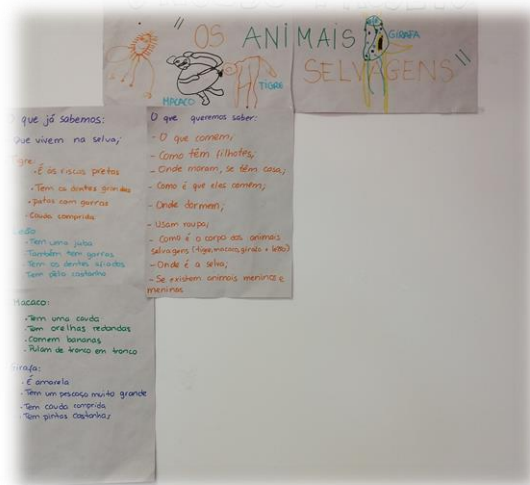 " OS ANIMAIS
SELVAGENS "
GIRAFA
TIGRE
MACACO
O que já sabemos:
Que vivem na selva;
Tigre:
- É às riscas pretas
- Tem os dentes grandes
- patas com garras
- Cauda comprida
Leão
- Tem uma juba
- Também tem garras
- Tem os dentes afiados
- Tem pelo castanho
Macaco:
- Tem uma cauda
- Tem orelhas redondas
- Comem bananas
- Pulam de tronco em tronco
Girafa:
- É amarela
- Tem um pescoço muito grande
- Tem cauda comprida
- Tem pintas castanhas
O que queremos saber:
- O que comem;
- Como têm filhotes;
- Onde moram, se têm casa;
- Como é que eles comem;
- Onde dormem;
- Usam roupa;
- Como é o corpo dos animais
selvagens (tigre, macaco, girafa e leão)
- Onde é a selva;
- Se existem animais meninos e
meninas